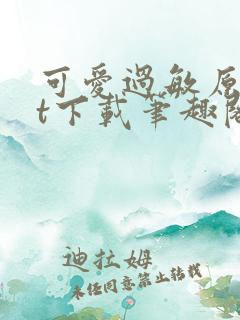 可愛過敏原
t下載筆趣閣
迪拉姆
未经同意禁止转载